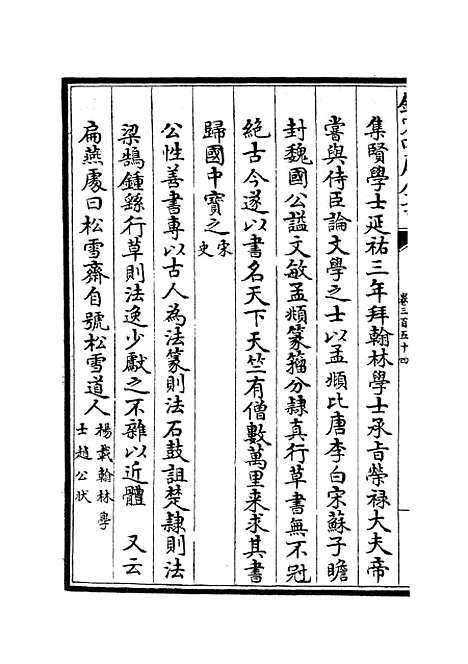 卷三百五十四
集賢學士延祐三年拜翰林學士承㫖榮禄大夫帝
嘗與侍臣論文學之士以孟頫比唐李白宋蘇子瞻
封魏國公諡文敏孟頫篆籀分隸真行草書無不冠
絶古今遂以書名天下天竺有僧數萬里来求其書
歸國中寳之宋史
公性善書專以古人為法篆則法石鼓詛楚隸則法
梁鵠鍾繇行草則法逸少獻之不雜以近體　又云
扁燕處曰松雪齋自號松雪道人楊載翰林學士趙公状